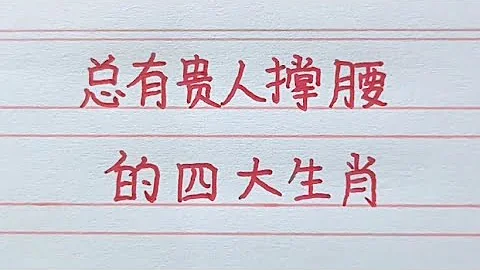 总有贵人撑腰
的四大生肖